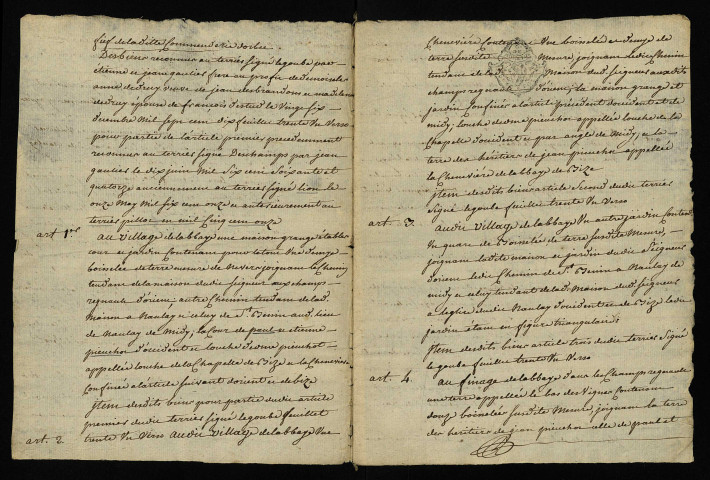 fief de la ditte Commenderie dorbec.
Desbiens reconnus au terrier signé legoube par
etienne et jean gautier fiers au profit de demoiselle
anne dedruy veuve de jean desbrandon et madelaine
dedruy épouse de francois destud le Vingt six
decembre Mil sept cent dix feuillet trente Un Verso
pour partie de larticle premier precedemment
reconnus au terrier signé Deschamps par jean
gautier le dix juin Mil six cens Soixante et
quatorze anciennement au terrier signé lion le
onze May Mil six cens onze et anterieurement au
terrier pillot en mil Cinq cens onze
art 1er au Village de labbaye une maison grange etable
cour et jardin Contenant pour le tout Une Demye
boisselée de terre mesure de nevers joignant le Chemin
tendant de la maison dudit Seigneur aux champs
regnault d'orient, autre Chemin tendant de lad.
Maison a Nanlay et celuy de St. Benin aud. lieu
de Nanlay de Midy, la Cour de paul et etienne
pieuchot d'occident et louche desdits pieuchot
appellée louche de la Chapelle de Bize et la Cheneviere
Confinée a larticle suivant dorient et de bize
Item desdits biens pour partie dudit article
premier dudit terrier signé legoube feuillet
art. 2. trente Un Verso Audit Village de labbaye Une
Cheneviére Contenant Une boisselée et demye de
terre susdite Mesure, joignant ledit Chemin
tendant de la d. Maison dud. Seigneur ausdits
champs regnault d'orient, la maison grange et
jardin Confinés a larticle précédent doccident et de
midy, louche desdits pieuchot appellée louche de la
Chapelle d'occident et par angle de Midy et la
terre des héritiers de jean pieuchot appellée
la Cheneviére de labbaye de Bize
Item desdits biens article Second dudit terrier
Signé legoube feuillet trente Un Verso
art. 3. Audit Village de labbaye Un autre jardin Contenant
Un quart de Boisselée de terre susdite Mesure,
joignant ladite maison et jardin dudit Seigneur
d'orient ledit Chemin de St. Benin a Nanlay de
midy et celuy tendant de lad. Maison dud. Seigneur
a leglise dudit Nanlay d'occident et de Bize ledit
jardin etant en figure triangulaire
Item desdits biens article trois dudit terrier Signé
legoube feuillet trente Un Verso
art. 4. au finage de labbaye dans les Champs regnault
une terre appellée le bas des Vignes Contenant
douze boisselées susdite Mesure, joignant la terre
des héritiers de jean pieuchot celle de paul et